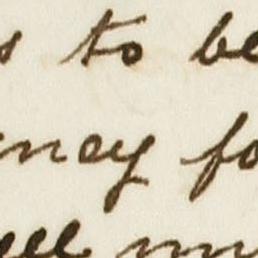 s to be
ney fo
ell m